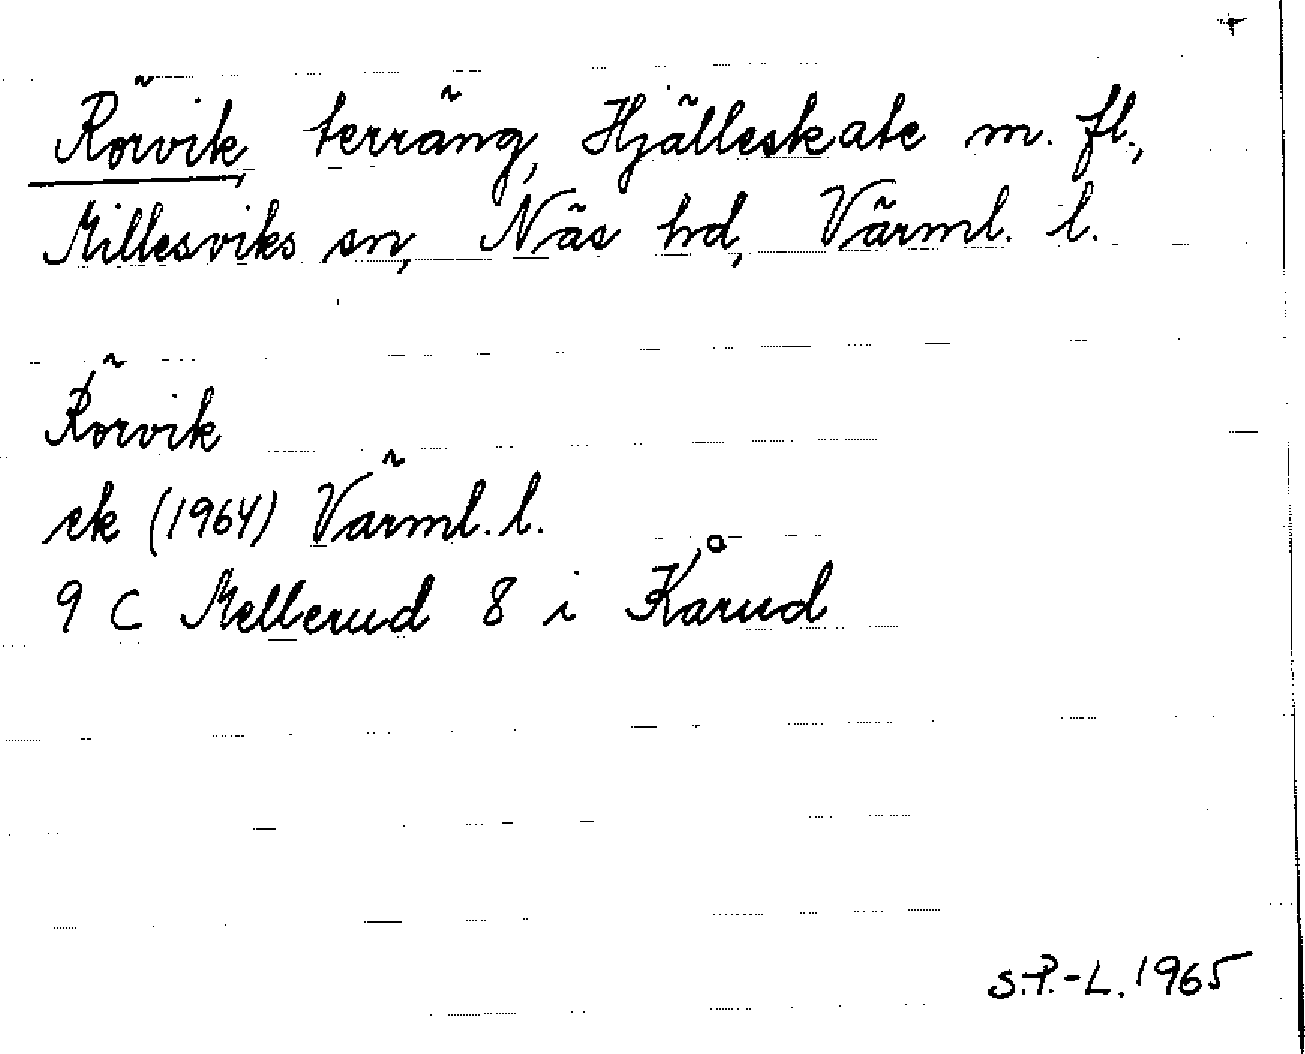 +
Rörvik, terräng, Hjälleskate m. fl.,
Millesviks sn, Näs hd, Värml. l.
Rörvik
ek (1964) Värml. l.
9 C Mellerud 8 i Kårud
S.P.-L. 1965